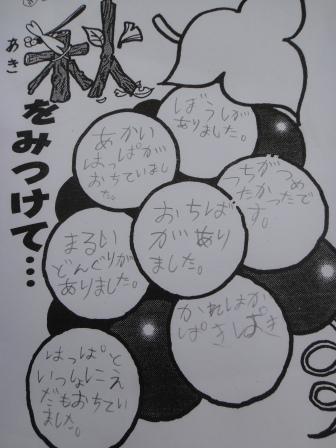 秋
あき
をみつけて…
ぼうしが
ありました。
あかい
はっぱが
おちていまし
た。
つちがつめ
たかったで
す。
おちば
があり
ました。
まるい
どんぐりが
ありました。
かれはが
ぱきぱき
はっぱと
いっしょにえ
だもおちてい
ました。